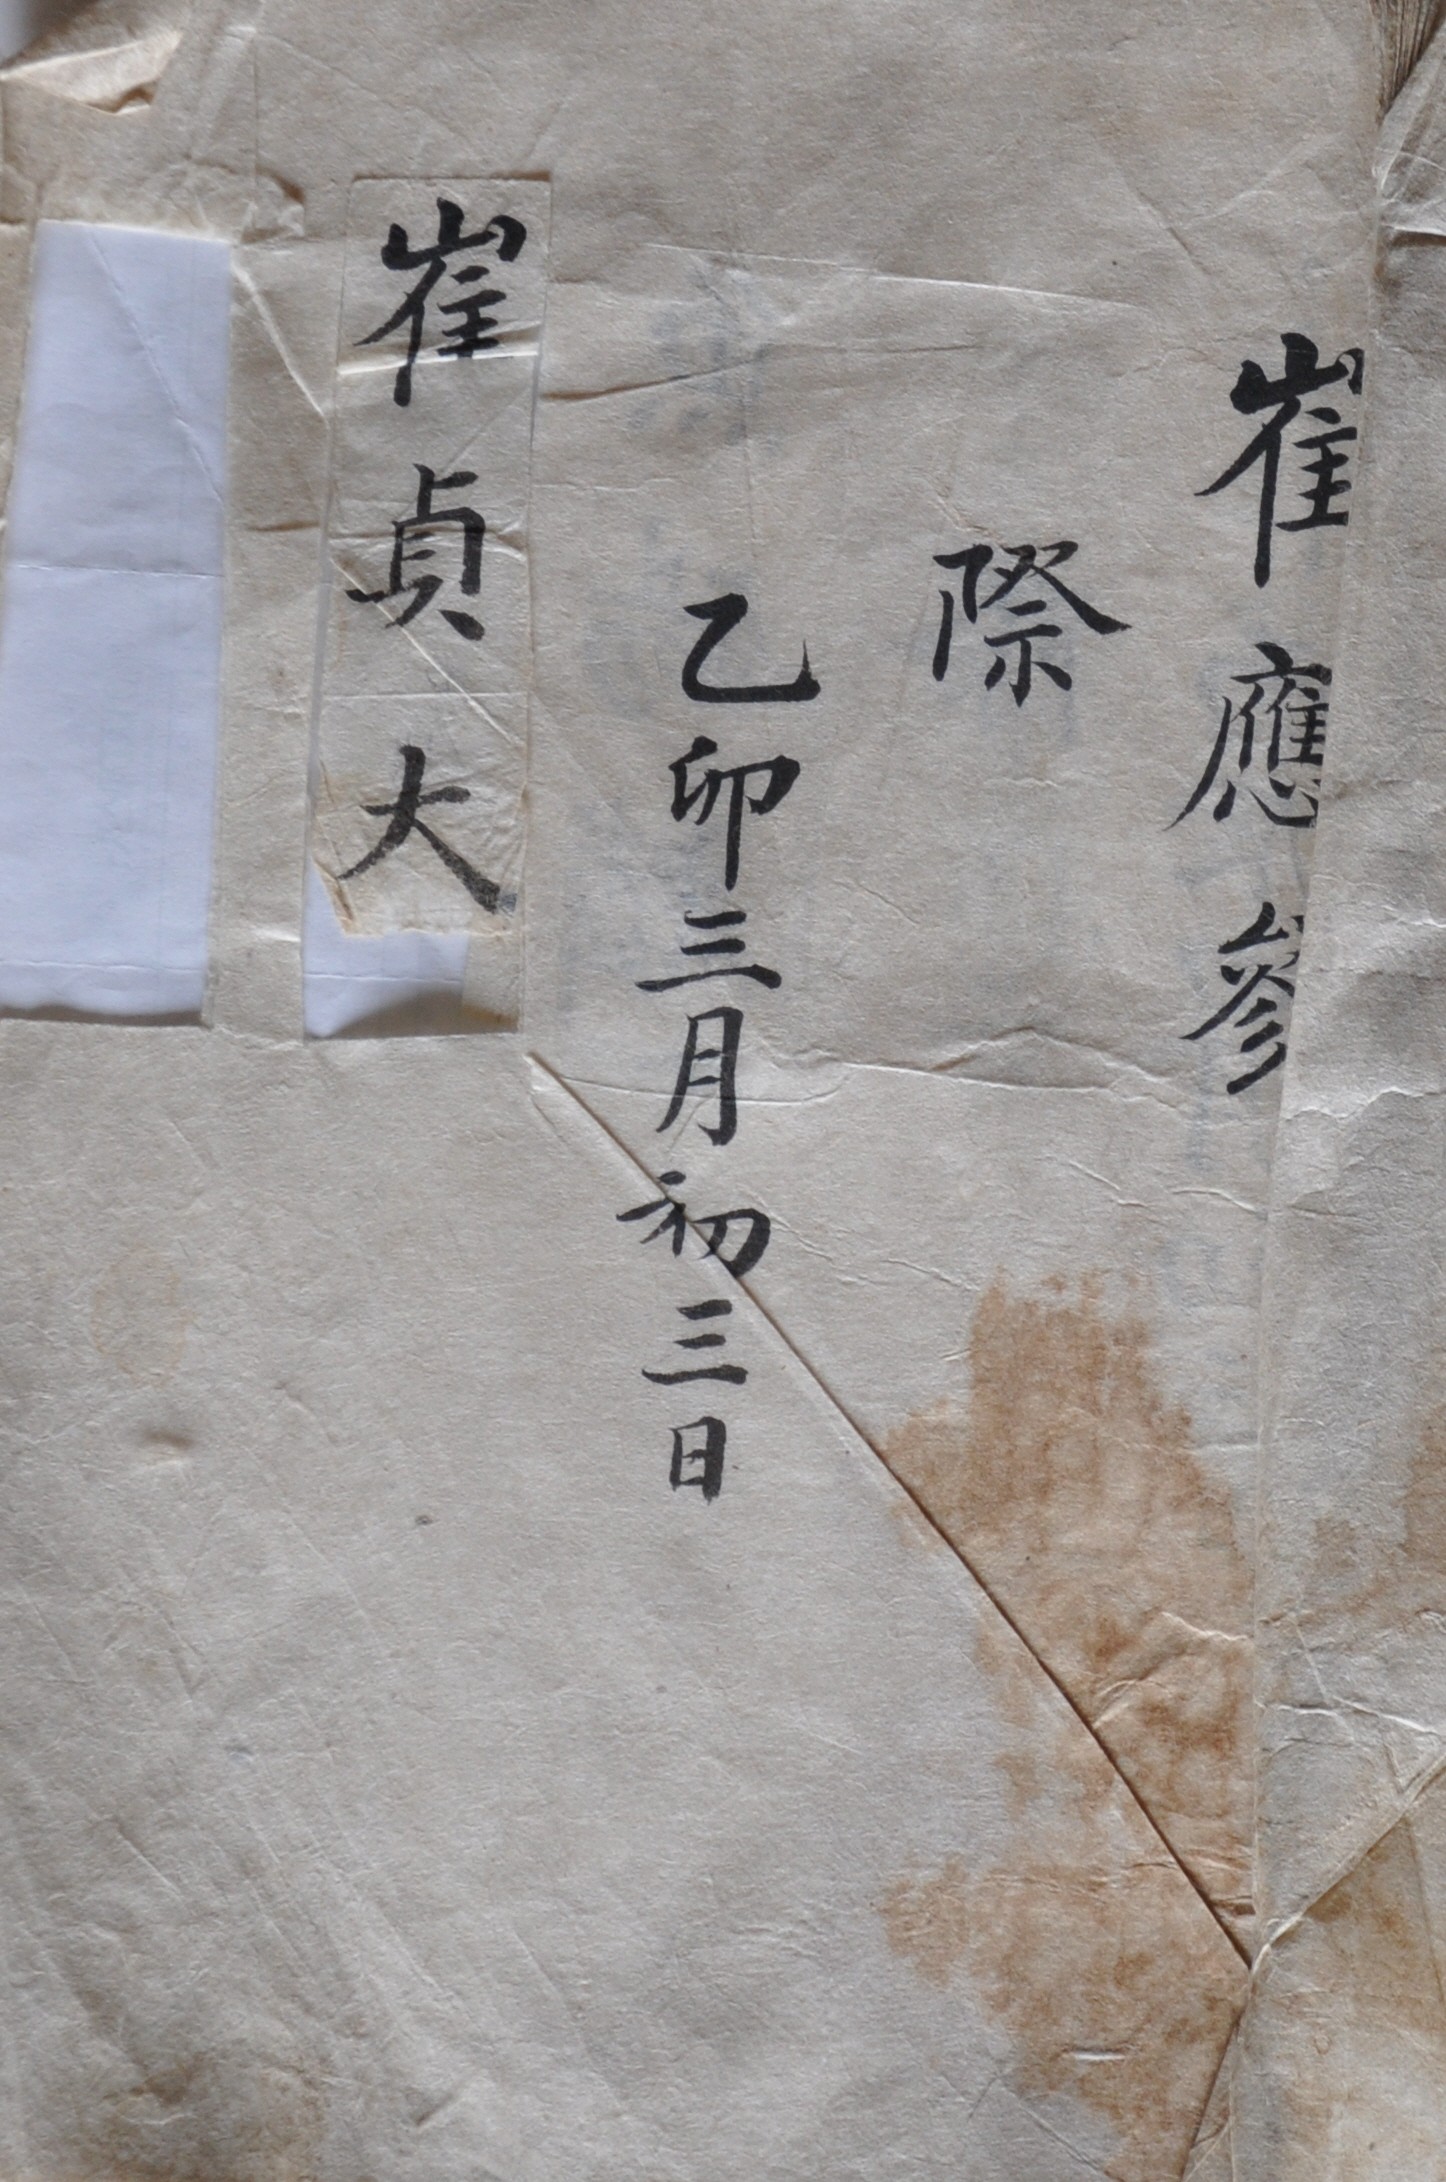 崔應參
際
乙卯三月初三日
崔貞大